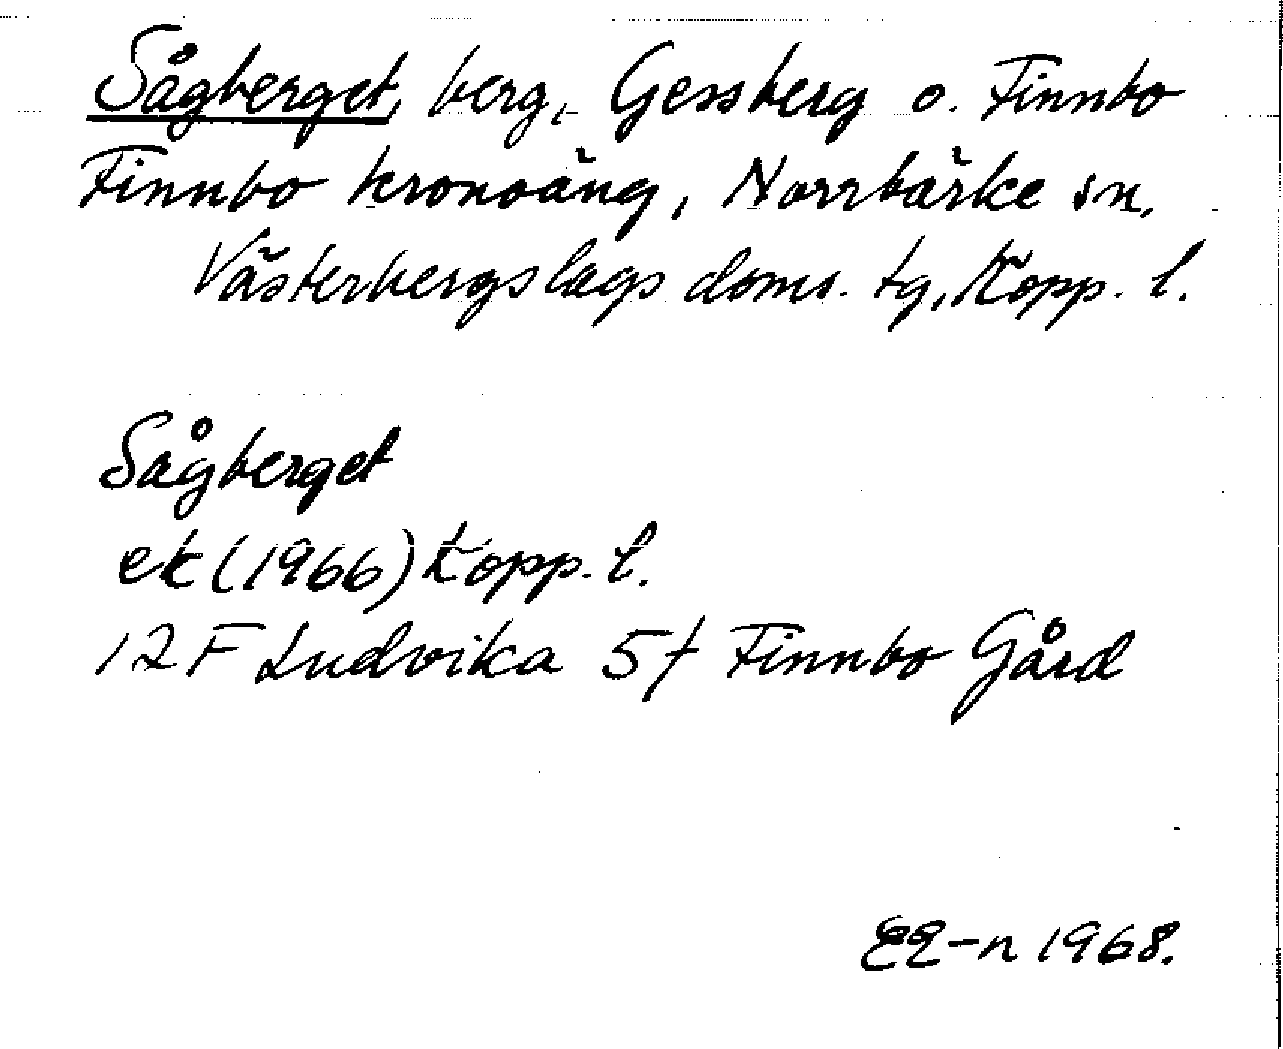 Sågberget, berg, Gessberg o. Finnbo
Finnbo kronoäng, Norrbärke sn,
Västerbergslags doms. tg, Kopp. l.
Sågberget
ek (1966) Kopp. l.
12F Ludvika 5f Finnbo Gård
EE-n 1968.